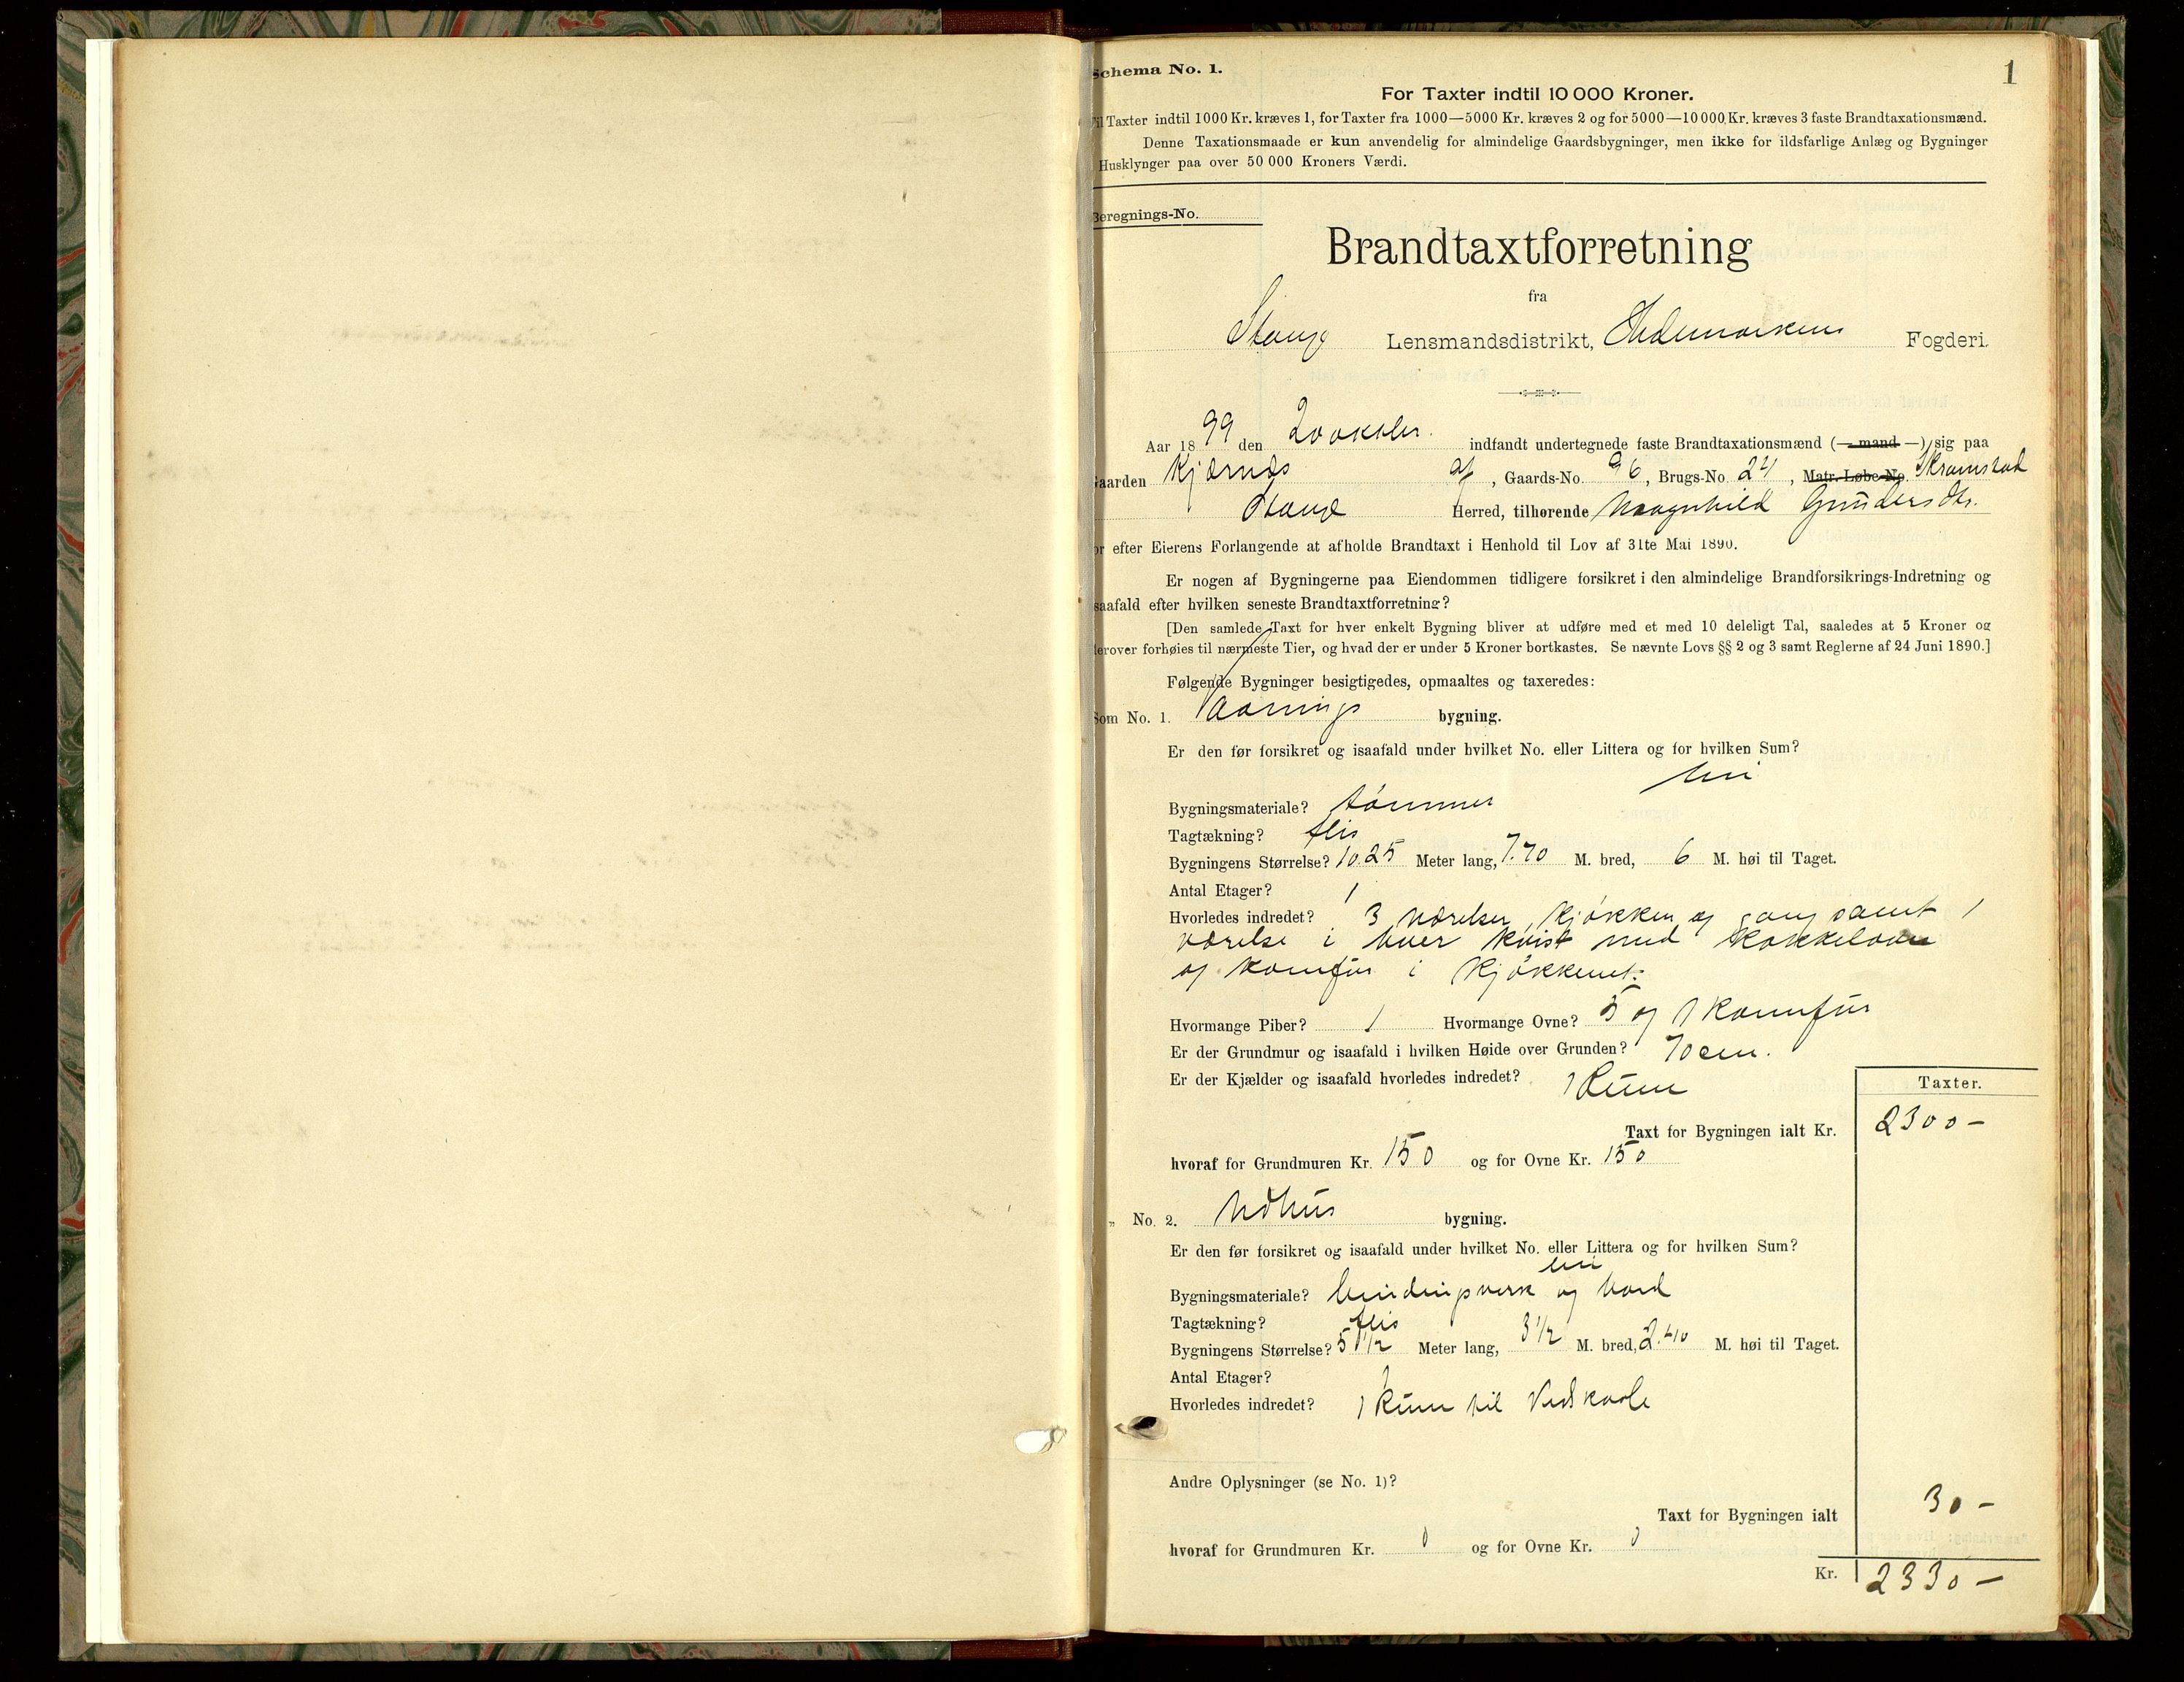 1
Schema No. 1.
For Taxter indtil 10 000 Kroner.
Til Taxter indtil 1000 Kr. kræves 1, for Taxter fra 1000—5000 Kr. kræves 2 og for 5000—10 000 Kr. kræves 3 faste Brandtaxationsmænd.
Denne Taxationsmaade er kun anvendelig for almindelige Gaardsbygninger, men ikke for ildsfarlige Anlæg og Bygninger
Husklynger paa over 50 000 Kroners Værdi.
Beregnings-No.
Brandtaxtforretning
fra
Stange Lensmandsdistrikt, Hedemarkens Fogderi.
Aar 1899 den 20 oktober indfandt undertegnede faste Brandtaxationsmænd (— mand —) sig paa
Gaarden Kjærnes af, Gaards-No. 96, Brugs-No. 24, Matr. Løbe-No. Skramstad
Stange Herred, tilhørende Magnhild Gundersdtr.
for efter Eierens Forlangende at afholde Brandtaxt i Henhold til Lov af 31te Mai 1890.
Er nogen af Bygningerne paa Eiendommen tidligere forsikret i den almindelige Brandforsikrings-Indretning og
isaafald efter hvilken seneste Brandtaxtforretning?
[Den samlede Taxt for hver enkelt Bygning bliver at udføre med et med 10 deleligt Tal, saaledes at 5 Kroner og
derover forhøies til nærmeste Tier, og hvad der er under 5 Kroner bortkastes. Se nævnte Lovs §§ 2 og 3 samt Reglerne af 24 Juni 1890.]
Følgende Bygninger besigtigedes, opmaaltes og taxeredes:
Som No. 1. Vaanings bygning.
Er den før forsikret og isaafald under hvilket No. eller Littera og for hvilken Sum?
nei
Bygningsmateriale? tømmer
Tagtækning? flis
Bygningens Størrelse? 10.25 Meter lang, 7.70 M. bred, 6 M. høi til Taget.
Antal Etager? 1
Hvorledes indredet? 3 værelser, kjøkken og gang samt 1
værelse i hver kvist med kakkelovne
og komfur i kjøkkenet.
Hvormange Piber? 1 Hvormange Ovne? 5 og 1 komfur
Er der Grundmur og isaafald i hvilken Høide over Grunden? 70 cm.
Er der Kjælder og isaafald hvorledes indredet? 1 Rum
Taxter.
Taxt for Bygningen ialt Kr. 2300 –
hvoraf for Grundmuren Kr. 150 og for Ovne Kr. 150
„ No. 2. Udhus bygning.
Er den før forsikret og isaafald under hvilket No. eller Littera og for hvilken Sum?
nei
Bygningsmateriale? bindingsverk og bord
Tagtækning? flis
Bygningens Størrelse? 5 1/2 Meter lang, 3 1/2 M. bred, 2.40 M. høi til Taget.
Antal Etager? 1
Hvorledes indredet? 1 Rum til Vedskaale
Andre Oplysninger (se No. 1)?
Taxt for Bygningen ialt 30 –
hvoraf for Grundmuren Kr. 0 og for Ovne Kr. 0
Kr. 2330 –